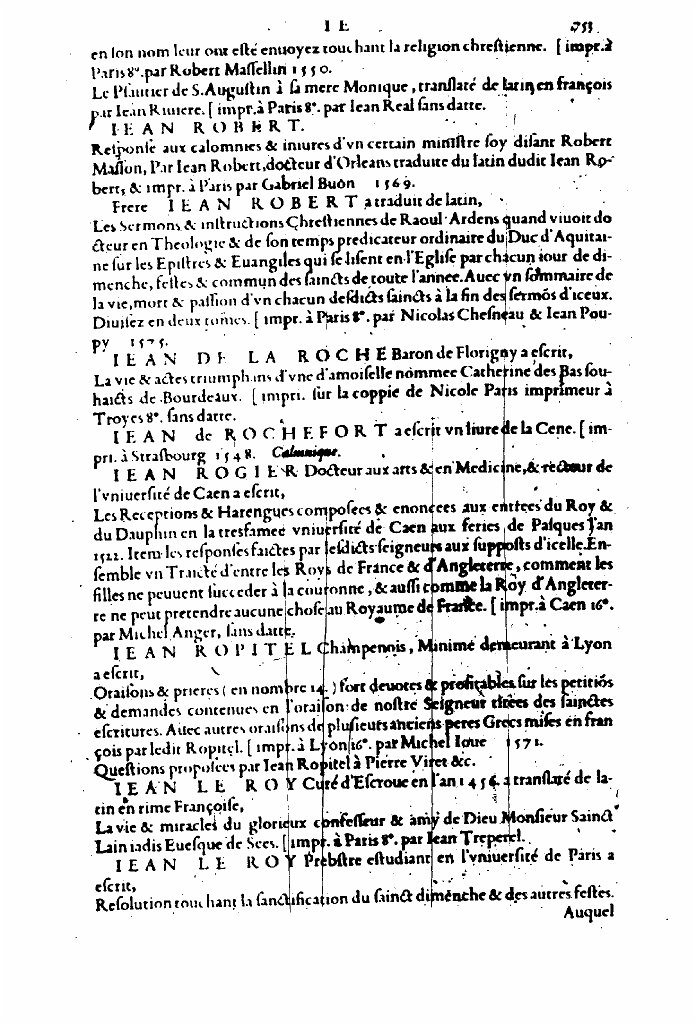 I E 753
en son nom leur ont esté enuoyez touchant la religion chrestienne. [ impr. à
Paris 8°. par Robert Massellin 1550.
Le Psautier de S. Augustin à sa mere Monique, translaté de latin en françois
par Iean Riuiere. [ impr. à Paris 8°. par Iean Real sans datte.
IEAN ROBERT.
Response aux calomnies & iniures d'vn certain ministre soy disant Robert
Masson, Par Iean Robert, docteur d'Orleans traduite du latin dudit Iean Ro-
bert, & impr. à Paris par Gabriel Buon 1569.
Frere IEAN ROBERT a traduit de latin,
Les Sermons & instructions Chrestiennes de Raoul Ardens quand viuoit do
cteur en Theologie & de son temps predicateur ordinaire du Duc d'Aquitai-
ne sur les Epistres & Euangiles qui se lisent en l'Eglise par chacun iour de di-
menche, festes & commun des saincts de toute l'annee. Auec vn sommaire de
la vie, mort & passion d'vn chacun desdicts saincts à la fin des sermõs d'iceux.
Diuisez en deux tomes. [ impr. à Paris 8°. par Nicolas Chesneau & Iean Pou-
py 1575.
IEAN DE LA ROCHE Baron de Florigny a escrit,
La vie & actes triumphans d'vne damoiselle nommee Catherine des Bas sou-
haicts de Bourdeaux. [ impri. sur la coppie de Nicole Paris imprimeur à
Troyes 8°. sans datte.
IEAN de ROCHEFORT a escrit vn liure de la Cene. [ im-
pri. à Strasbourg 1548. Calumnique.
IEAN ROGIER Docteur aux arts & en Medicine, & recteur de
l'vniuersité de Caen a escrit,
Les Receptions & Harengues composees & enoncees aux entrees du Roy &
du Dauphin en la tresfamee vniuersité de Caen aux feries de Pasques l'an
1522. Item les responses faictes par lesdicts seigneurs aux supposts d'icelle. En-
semble vn Traicté d'entre les Roys de France & d'Angleterre, comment les
filles ne peuuent succeder à la couronne, & aussi comme la Roy d'Angleter-
re ne peut pretendre aucune chose au Royaume de France. [ impr. à Caen 16°.
par Michel Anger, sans datte.
IEAN ROPITEL Champennois, Minime demeurant à Lyon
a escrit,
Oraisons & prieres ( en nombre 14. ) fort deuotes & profitables sur les petitiõs
& demandes contenues en l'oraison de nostre Seigneur tirees des sainctes
escritures. Auec autres oraisons de plusieurs anciens peres Grecs mises en fran
çois par ledit Ropitel. [ impr. à Lyon 16°. par Michel Ioue 1571.
Questions proposees par Iean Ropitel à Pierre Viret &c.
IEAN LE ROY Curé d'Escroue en l'an 1456. a translaté de la-
tin en rime Françoise,
La vie & miracles du glorieux confesseur & amy de Dieu Monsieur Sainct
Lain iadis Euesque de Sees. [ impr. à Paris 8°. par Iean Treperel.
IEAN LE ROY Prebstre estudiant en l'vniuersité de Paris a
escrit,
Resolution touchant la sanctification du sainct dimenche & des autres festes.
Auquel